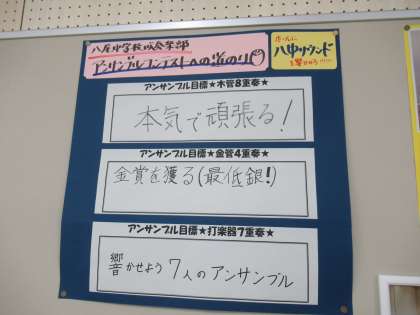 八尾中学校吹奏楽部
アンサンブルコンテストへの道のり
八中サウンド
を響かせろ!!!!!
アンサンブル目標★木管8重奏★
本気で頑張る!
アンサンブル目標★金管4重奏★
金賞を獲る(最低銀!)
アンサンブル目標★打楽器7重奏★
響かせよう 7人のアンサンブル